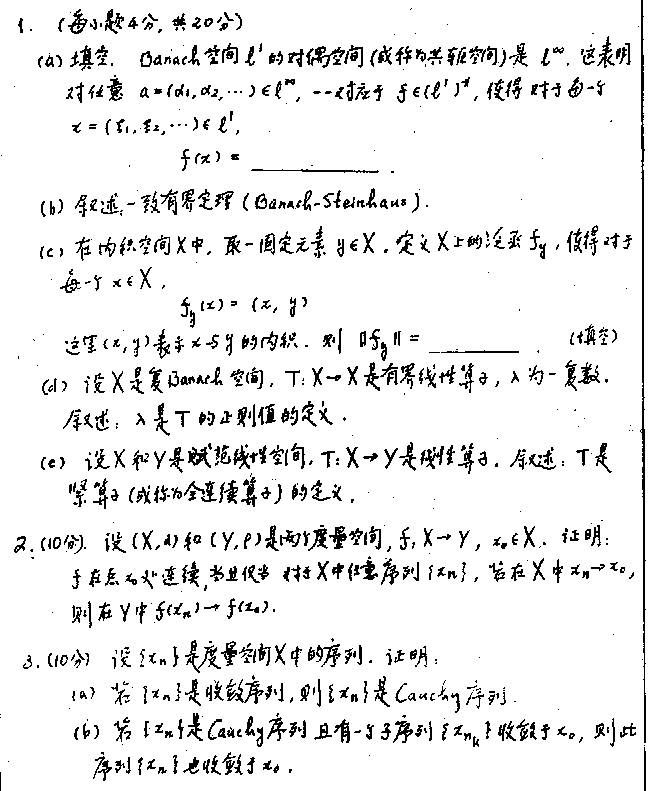 1. (每小题4分,共20分)
(a) 填空. Banach空间 l¹ 的对偶空间(或称为共轭空间)是 l^∞. 这表明
对任意 a=(α₁,α₂,…)∈l^∞, 一一对应于 f∈(l¹)*, 使得对于每一个
x=(ξ₁,ξ₂,…)∈l¹,
f(x)= ________ .
(b) 叙述:一致有界定理(Banach-Steinhaus).
(c) 在内积空间X中, 取一固定元素 y∈X. 定义X上的泛函 f_y, 使得对于
每一个 x∈X,
f_y(x)=(x,y)
这里(x,y)表示x与y的内积. 则 ‖f_y‖= ________ . (填空)
(d) 设X是复Banach空间, T:X→X是有界线性算子, λ为一复数.
叙述: λ是T的正则值的定义.
(e) 设X和Y是赋范线性空间, T:X→Y是线性算子. 叙述: T是
紧算子(或称为全连续算子)的定义.
2. (10分). 设(X,d)和(Y,ρ)是两个度量空间, f:X→Y, x₀∈X. 证明:
f在点x₀处连续,当且仅当 对于X中任意序列{xₙ}, 若在X中xₙ→x₀,
则在Y中f(xₙ)→f(x₀).
3. (10分) 设{xₙ}是度量空间X中的序列. 证明:
(a) 若{xₙ}是收敛序列, 则{xₙ}是Cauchy序列.
(b) 若{xₙ}是Cauchy序列 且有一个子序列{x_{n_k}}收敛于x₀, 则此
序列{xₙ}也收敛于x₀.